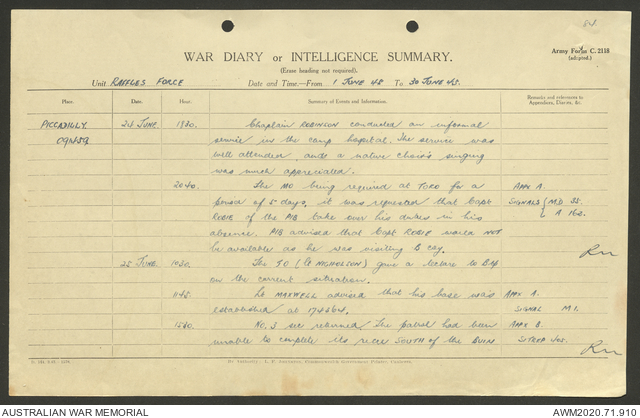 84
Army Form C. 2118
(adapted.)
WAR DIARY or INTELLIGENCE SUMMARY.
(Erase heading not required).
Unit RAFFLES FORCE Date and Time.—From 1 JUNE 45 To 30 JUNE 45.
Place. Date. Hour. Summary of Events and Information. Remarks and references to Appendices, Diaries, &c.
PICCADILLY 24 JUNE. 1930. Chaplain ROBINSON conducted an informal
091459 service in the camp hospital. The service was
well attended, and a native choir's singing
was much appreciated.
2040. The MO being required at TOKO for a APPX A.
period of 5 days, it was requested that Capt SIGNALS { MD 35.
ROBIE of the PIB take over his duties in his { A 162.
absence. PIB advised that Capt ROBIE would NOT
be available as he was visiting B Coy.
25 JUNE. 1030. The IO (Lt NICHOLSON) gave a lecture to
on the current situation.
1145. Lt MAXWELL advised that his base was APPX A.
established at 174564. SIGNAL M1.
1540. No. 3 sec returned. The patrol had been APPX B.
unable to complete its recce SOUTH of the BUIN SITREP
By Authority: L. F. Johnston, Commonwealth Government Printer, Canberra.
AUSTRALIAN WAR MEMORIAL AWM2020.71.910